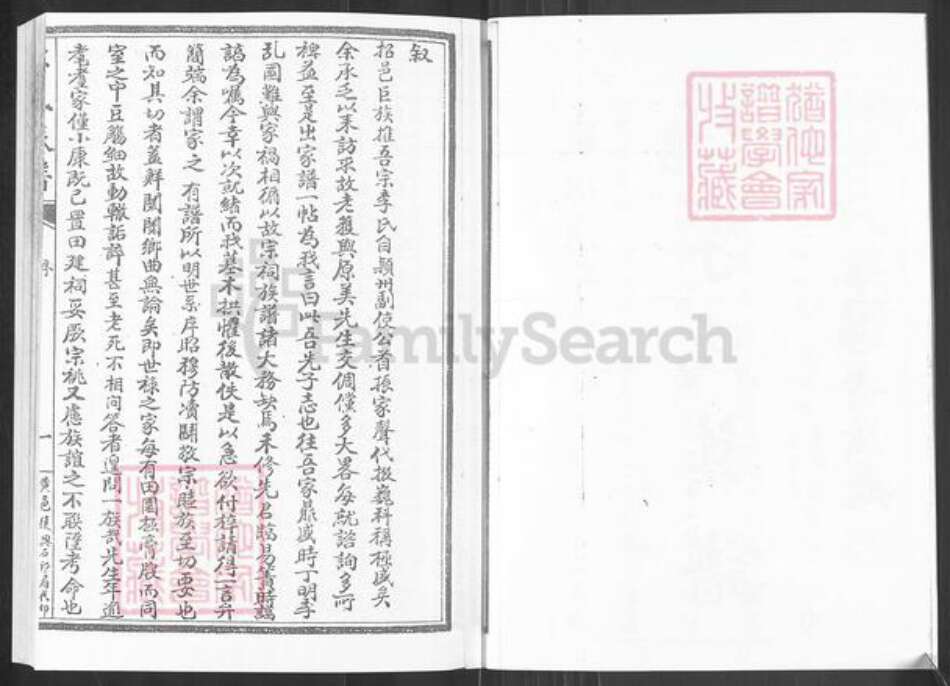 叙
招邑巨族推吾宗李氏自潁州副使公首振家聲代掇巍科稱極盛矣
余承乏以来訪采故老獲與原美先生交倜儻多大畧每就諮詢多所
裨益至是出家譜一帖為我言曰此吾先子志也往吾家鼎盛時丁明季
乱國難與家禍相循以故宗祠族譜諸大務缺焉未修先君臨易簀時諄
諄為囑今幸以次就緒而我墓木拱懼後散佚是以急欲付梓請得一言弁
簡端余謂家之有譜所以明世系序昭穆防凟鬪敬宗睦族至切要也
而知其切者蓋鮮閭閻鄉曲無論矣即世祿之家每有田園極膏腴而同
室之中豆觴細故動輒詬誶甚至老死不相问答者遑問一族哉先生年逾
耄耋家僅小康既已置田建祠妥厥宗祧又慮族誼之不聯陞考命也
序
一
黄邑復興石印局代印
猶他家
譜學會
收藏
FamilySearch